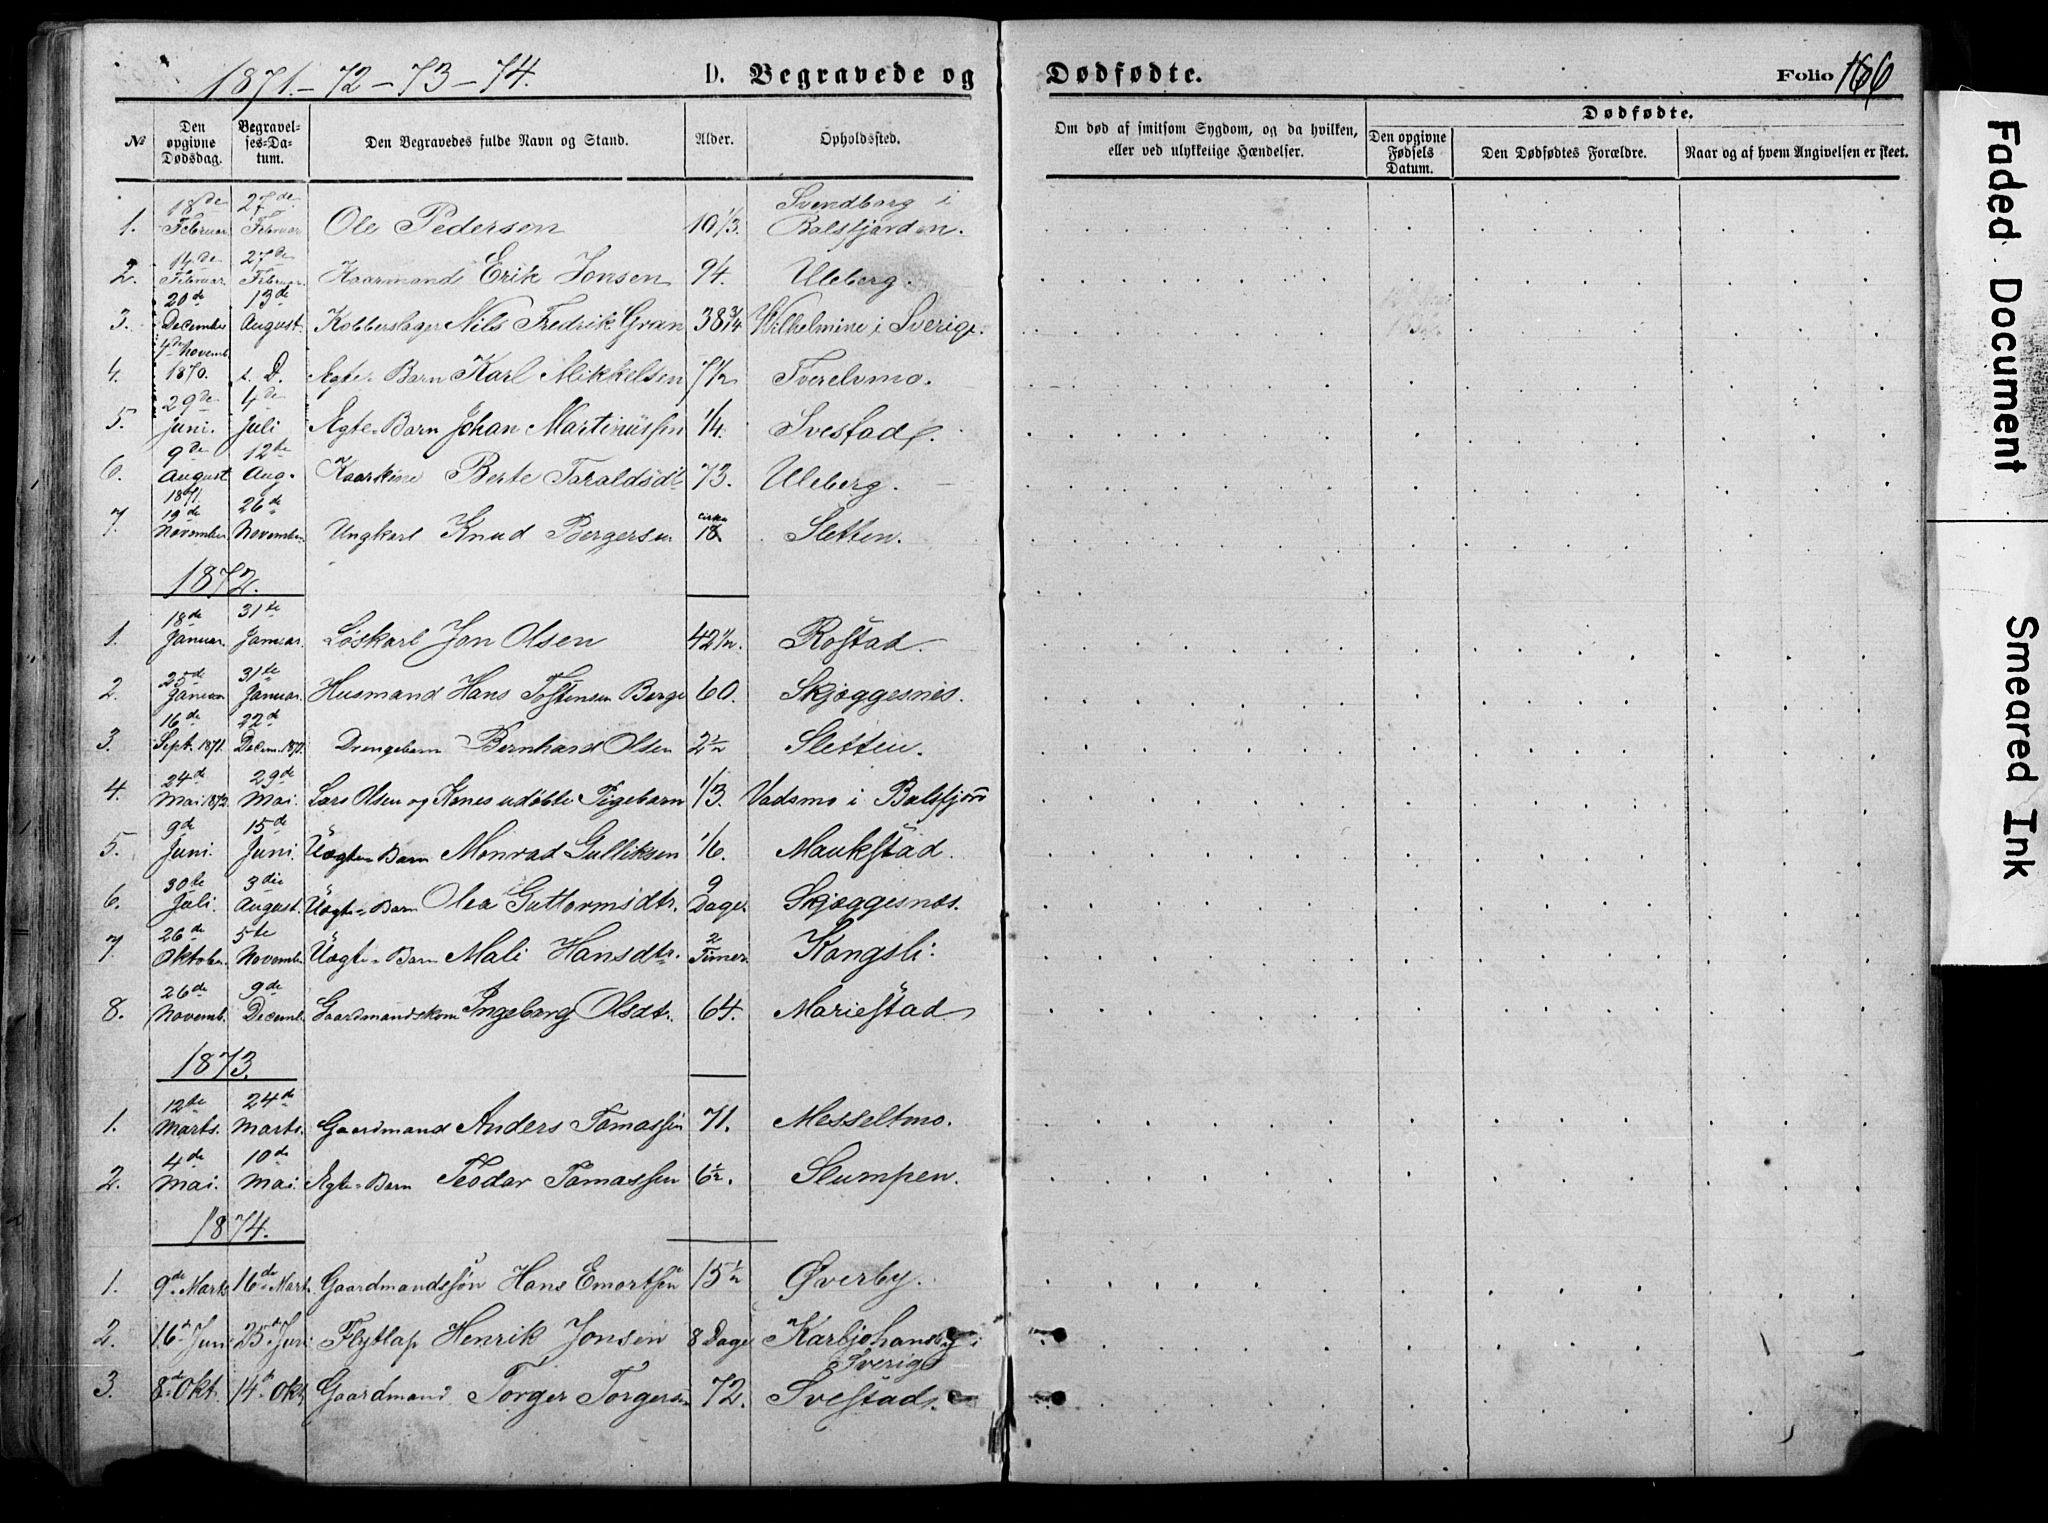 1871.-72-73-74.
D. Begravede og Dødfødte.
Folio 166
№
Den opgivne Dødsdag.
Begravelses-Datum.
Den Begravedes fulde Navn og Stand.
Alder.
Opholdssted.
Om død af smitsom Sygdom, og da hvilken, eller ved ulykkelige Hændelser.
Dødfødte.
Den opgivne Fødsels Datum.
Den Dødfødtes Forældre.
Naar og af hvem Angivelsen er skeet.
1. 18de Februar. 27de Februar Ole Pederson 10 1/3. Svendborg i Balsfjorden.
2. 14de Februar. 27de Februar. Kaarmand Erik Jonsen 94. Uleberg.
3. 20de December 13de August. Kobberslager Nils Fredrik Gran 38 3/4 Wilhelmine i Sverige.
4. 4de Novemb. 1870. s. D. Ægte-Barn Karl Mikkelsen 7 1/2 Tverelvmo.
5. 29de Juni. 4de Juli Ægte-Barn Johan Martinussen 1/4. Svestad.
6. 9de August 1871. 12te Aug. Kaarkone Berte Taraldsdt 73. Uleberg.
7. 19de November 26de November Ungkarl Knud Bergersen cirka 18 Sletten.
1872.
1. 18de Januar. 31te Januar. Løskarl Jon Olsen 42 1/2. Rostad.
2. 25de Januar 31te Januar. Husmand Hans Tostensen Berge 60. Skjæggesnes.
3. 16de Sept. 1871. 22de Decem. 1871. Drengebarn Bernhard Olsen 2 1/2 Sletten.
4. 24de Mai 1872. 29de Mai. Lars Olsen og Kones udøbte Pigebarn 1/3. Vadsmo i Balsfjord
5. 9de Juni. 15de Juni. Uægte-Barn Monrad Gulliksen 1/6. Maukstad.
6. 30te Juli. 3die August. Uægte-Barn Olea Guttormsdtr. 9 Dage. Skjæggesnæs.
7. 26de Oktober. 5te Novemb. Uægte-Barn Mali Hansdtr. 2 Timer. Kongsli.
8. 26de Novemb. 9de Decemb. Gaardmandskone Ingeborg Olsdtr. 64. Mariestad
1873.
1. 12te Marts. 24de Marts. Gaardmand Anders Tomassen 71. Messeltmo.
2. 4de Mai. 10de Mai. Ægte-Barn Teodor Tomassen 6 1/2. Slumpen.
1874.
1. 9de Marts 16de Mart. Gaardmandssøn Hans Emortsen 15 1/2 Øverby.
2. 16de Juni 25de Juni Flytlap Henrik Jonsen 8 Dage Karljohansby i Sverige
3. 8de Okt. 14de Okt Gaardmand Torger Torgersen 72. Svestad.
Faded Document
Smeared Ink